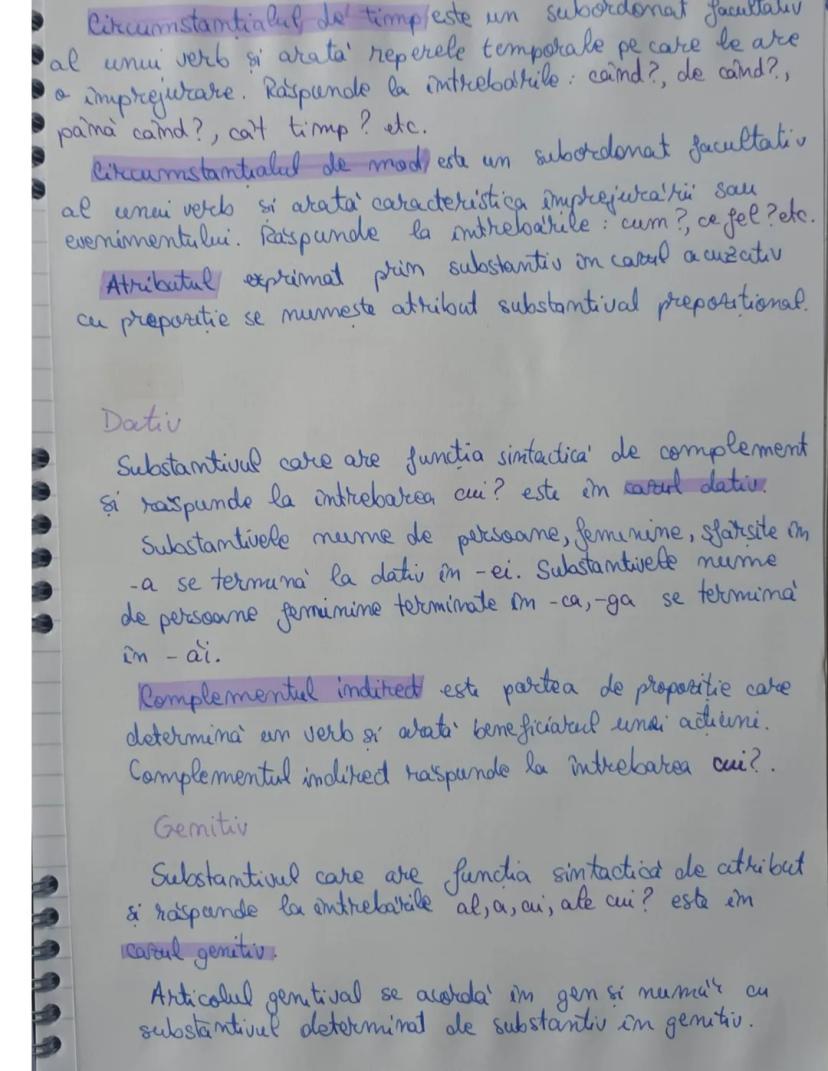 Circumstanțialul de timp este un subordonat facultativ
al unui verb și arată reperele temporale pe care le are
o împrejurare. Răspunde la întrebările: când?, de când?,
până când?, cât timp? etc.
Circumstanțialul de mod este un subordonat facultativ
al unui verb și arată caracteristica împrejurării sau
evenimentului. Răspunde la întrebările: cum?, ce fel? etc.
Atributul exprimat prin substantiv în cazul acuzativ
cu prepoziție se numește atribut substantival prepozițional.
Dativ
Substantivul care are funcția sintactică de complement
și răspunde la întrebarea cui? este în cazul dativ.
Substantivele nume de persoane, feminine, sfârșite în
-a se termină la dativ în -ei. Substantivele nume
de persoane feminine terminate în -ca, -ga se termină
în -ăi.
Complementul indirect este partea de propoziție care
determină un verb și arată beneficiarul unei acțiuni.
Complementul indirect răspunde la întrebarea cui?.
Genitiv
Substantivul care are funcția sintactică de atribut
și răspunde la întrebările al, a, ai, ale cui? este în
cazul genitiv.
Articolul genitival se acordă în gen și număr cu
substantivul determinat de substantiv în genitiv.